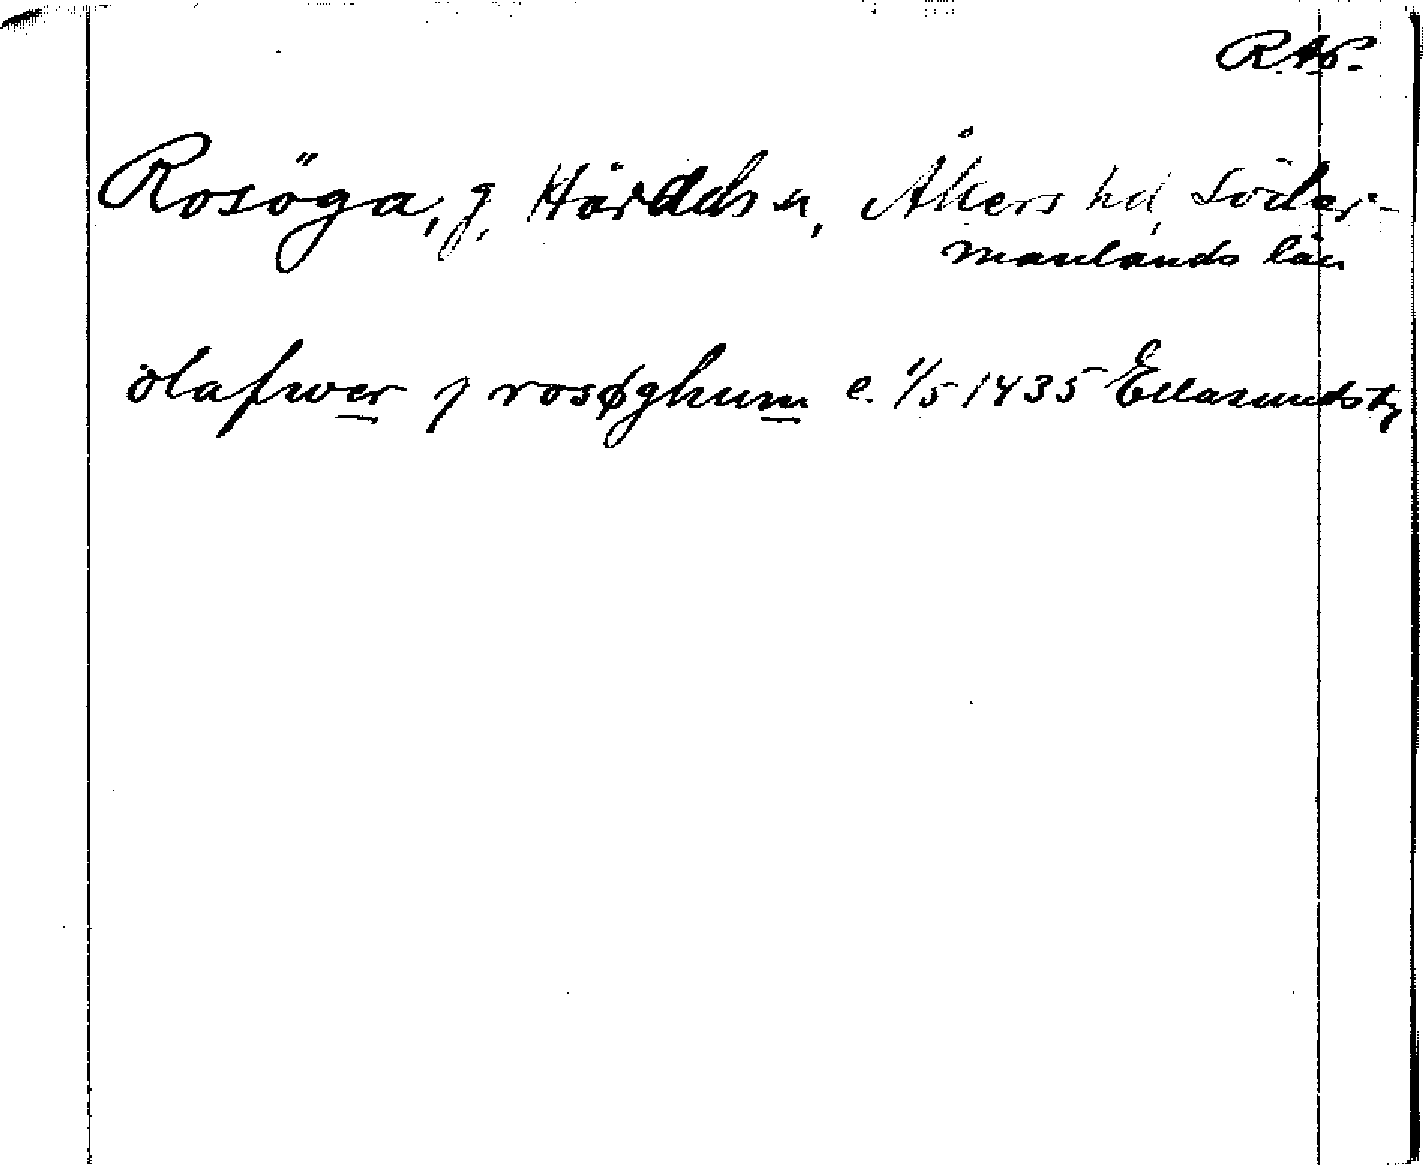 RAP.
Rosöga, g, Härads sn, Åkers hd, Söder-
manlands län
olafwer j rosøghum e. 1/5 1435 Ellasundsby